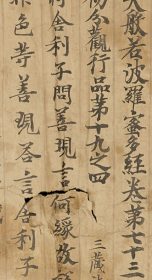 大般若波羅蜜多經卷第七十三
初分觀行品第十九之四
三藏法
時舍利子問善現言何緣故
非色等善現答言舍利子